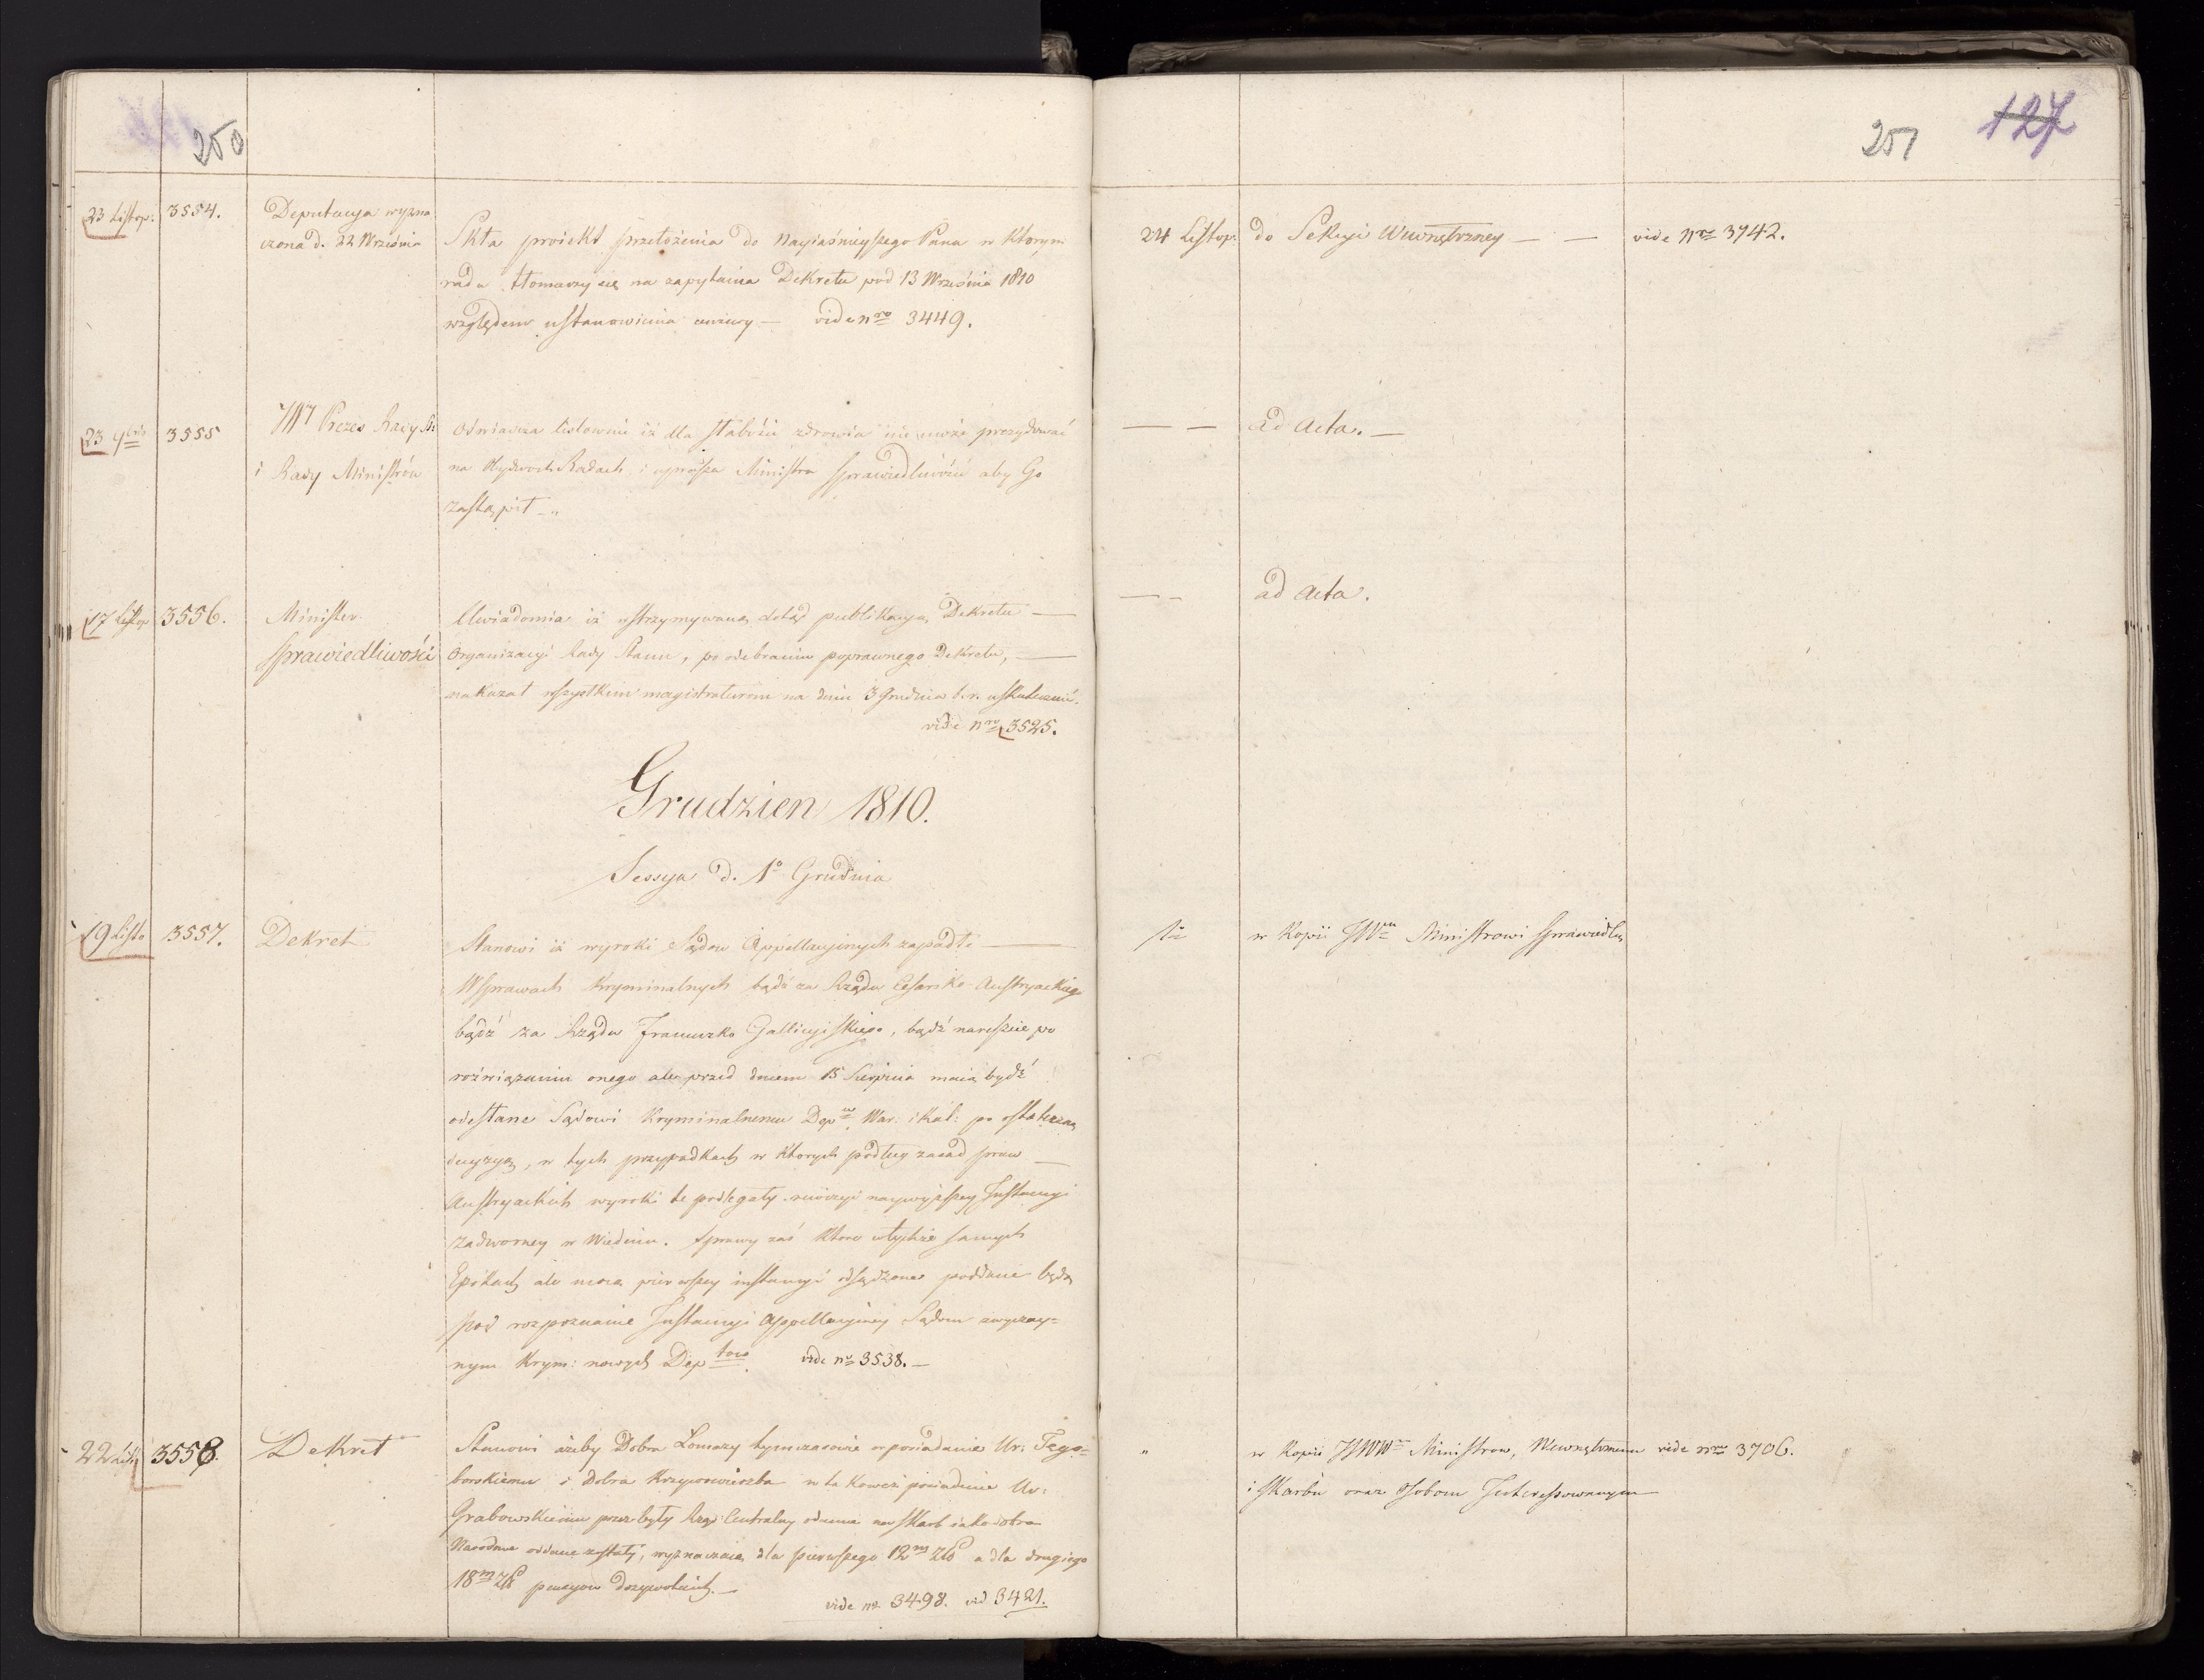 250
23 Listop. 3554. Deputacya wyzna
czona d. 22 Września
Skła proiekt przełożenia do Nayiaśnieyszego Pana w którym
rada tłomaczy się na zapytania Dekretu pod 13 Września 1810
względem ustanowienia cenzury — vide nro 3449.
23 9bris 3555 JW Prezes Rady St:
i Rady Ministrów
Oświadcza listownie iż dla słabości zdrowia nie może prezydować
na Radach i uprasza Ministra Sprawiedliwości aby Go
zastąpił
17 Listop 3556. Minister
Sprawiedliwości
Uwiadomia iż wstrzymywaną dotąd publikacyą Dekretu —
Organizacyi Rady Stanu, po odebraniu poprawnego Dekretu, —
nakazał wszystkim magistraturom na dniu 3 Grudnia b.r. uskutecznić.
vide nro 3525.
Grudzien 1810.
Sessya d. 1o Grudnia
19 Listo 3557. Dekret
Stanowi iż wyroki Sądów Appellacyinych zapadłe —
W sprawach kryminalnych bądź za Rządu Cesarsko Austryackiego
bądź za Rządu Francuzko Gallicyiskiego, bądź nareszcie po
rozwiązaniu onego ale przed dniem 15 Sierpnia maią bydź
odesłane Sądowi Kryminalnemu Depu War: i Kal: po ostateczną
decyzyą, w tych przypadkach w których podług zasad praw —
Austryackich wyroki te podlegały rewizyi naywyższey Instancyi
Zadworney w Wiedniu. Sprawy zaś które w tychże samych
Epokach ale mocą pierwszey instancyi osądzone poddane będą
pod rozpoznanie Instancyi Appellacyiney Sądom zwyczay=
nym Krym: nowych Deptow vide no 3538. —
22 List 3558. Dekret
Stanowi ażeby Dobra Łomazy tymczasowie w posiadanie Ur: Tego=
borskiemu i dobra Krzywowierzba w takoweż posiadanie Ur:
Grabowskiemu przez były Rząd Centralny oddane na skarb iako dobra
Narodowe oddane zostały, wyznaczaiąc dla pierwszego 12m Zł a dla drugiego
18m Zł pensyow dożywotnich. —
vide no 3498. vid 3421.
251 127
24 Listop. do Sekcyi Wewnętrzney — — vide Nro 3742.
— — ad acta. —
— — ad acta.
w Kopii JWmu Ministrowi Sprawiedl.
" w Kopii JJWW Ministrow, Wewnętrznemu vide nro 3706.
i Skarbu oraz Osobom Interessowanym —